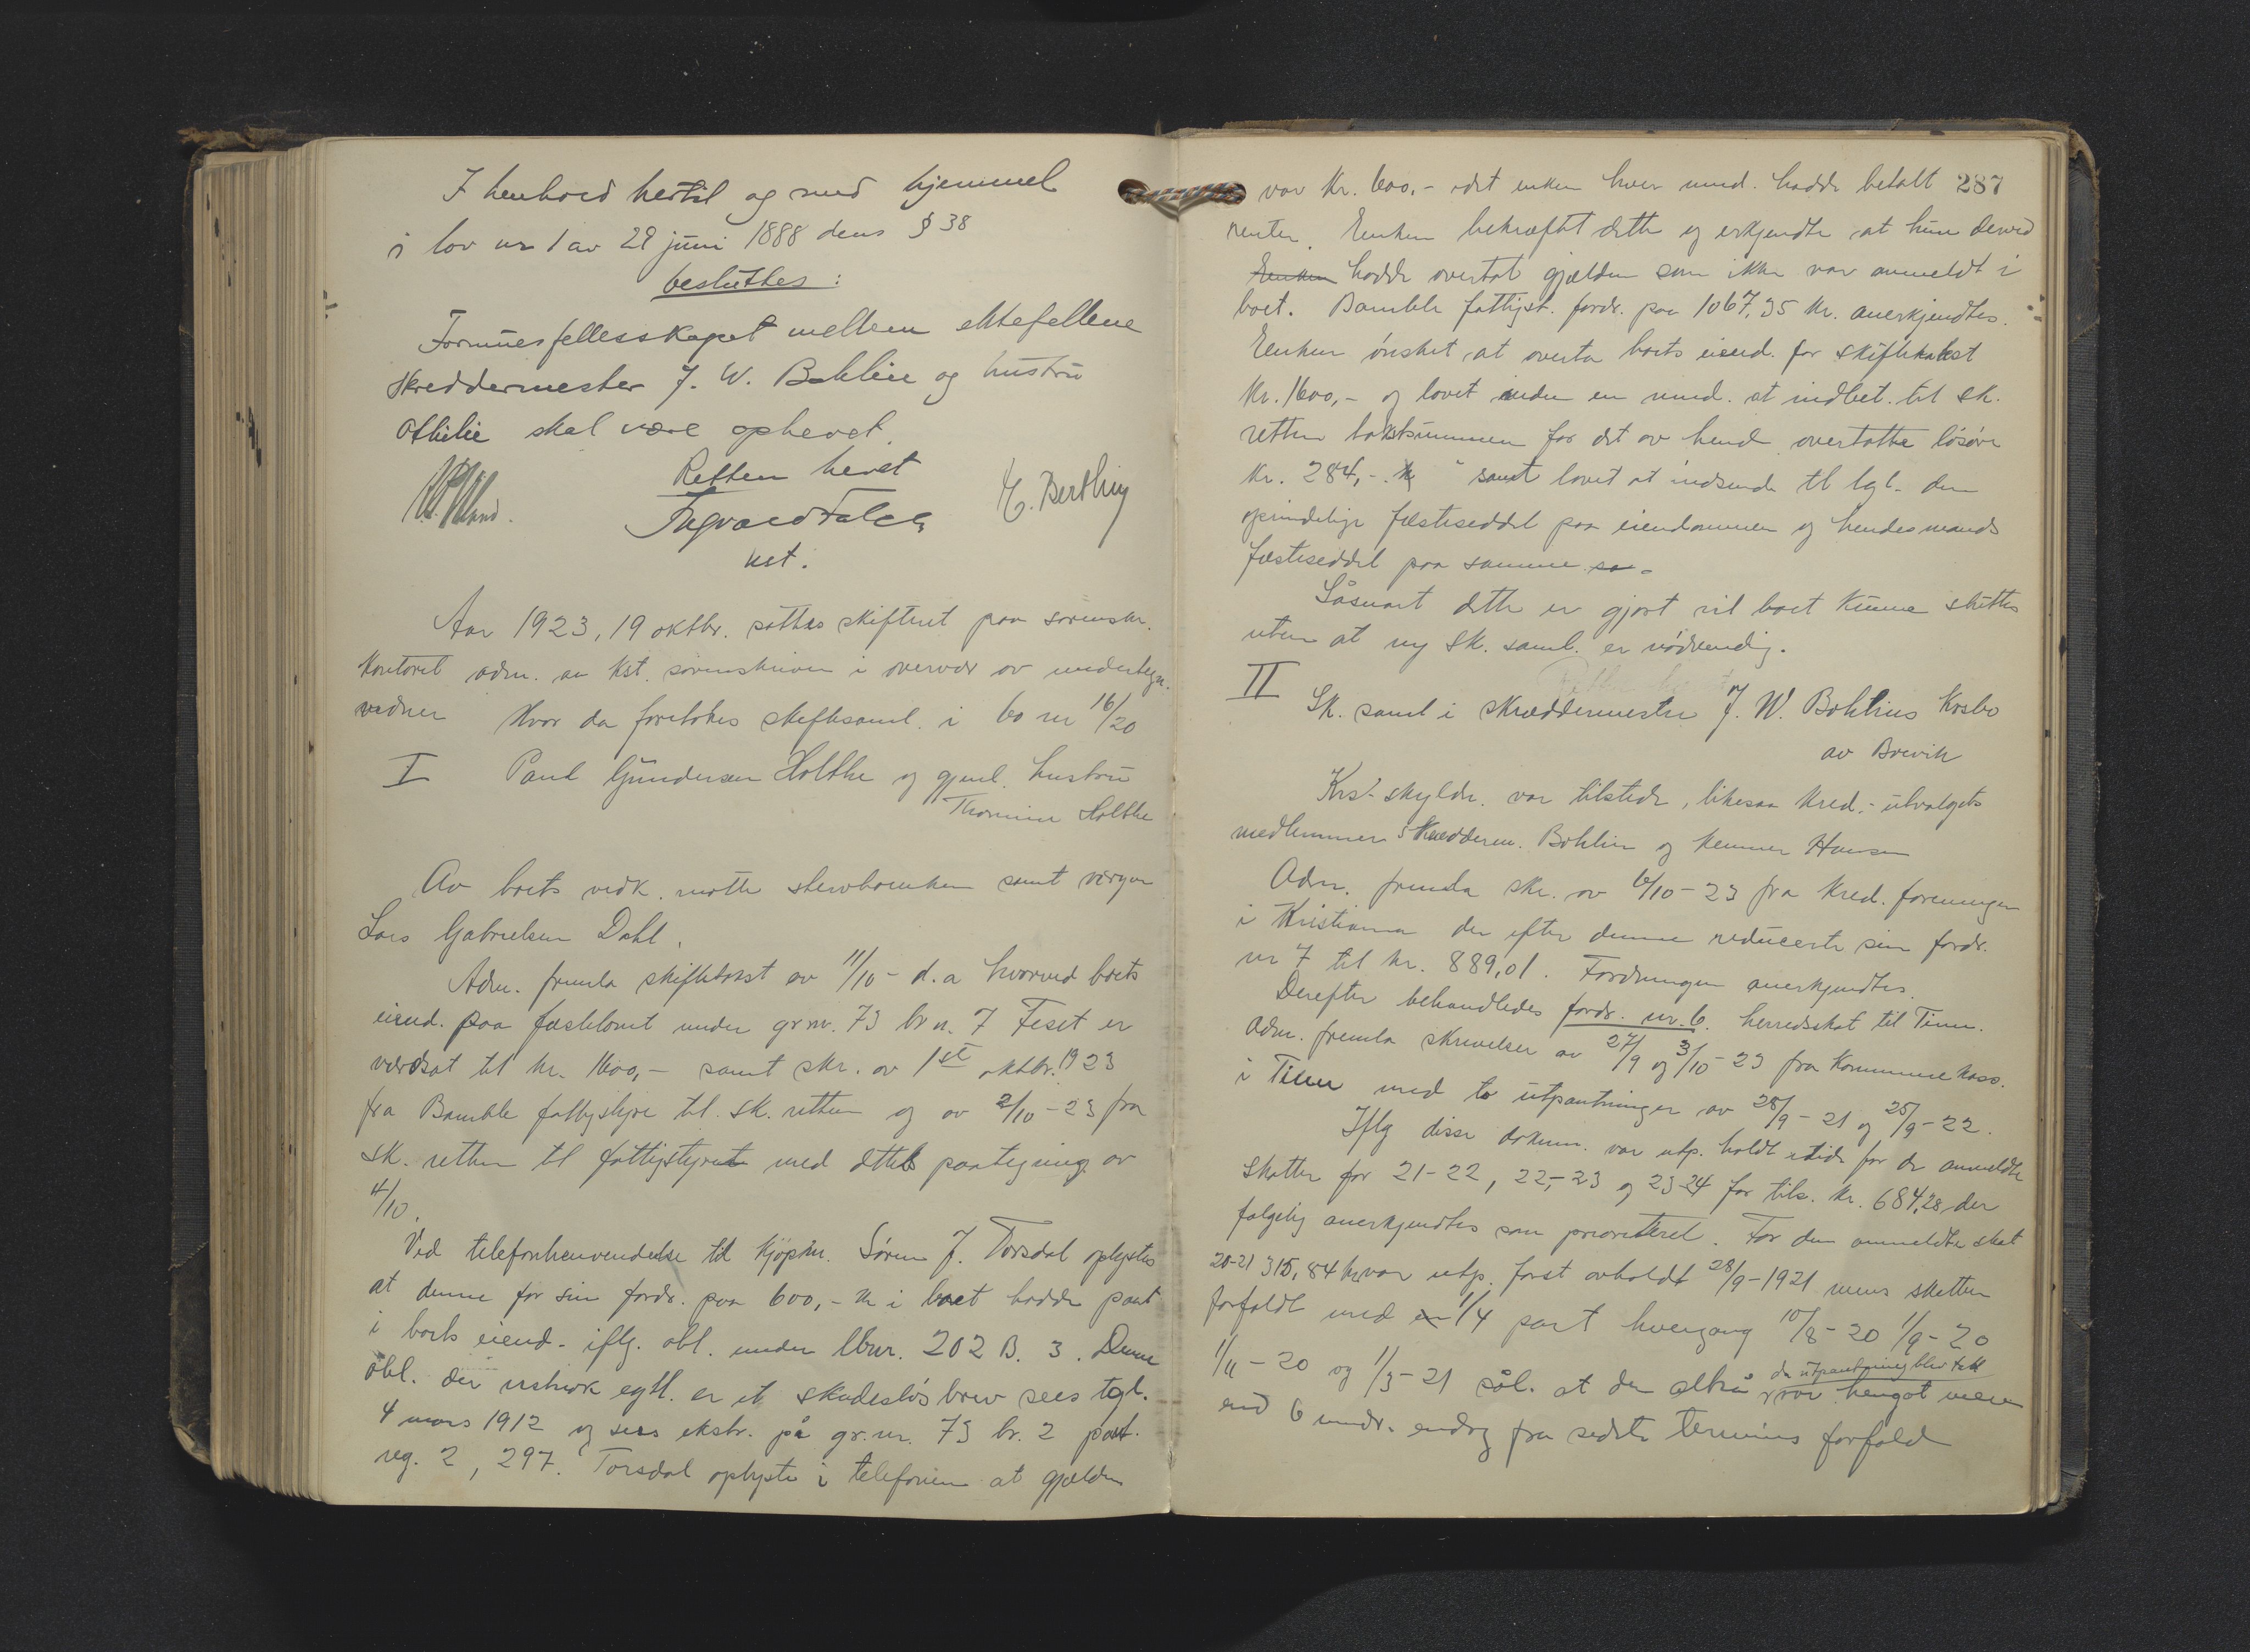 I henhold hertil og med hjemmel
i lov nr 1 av 29 juni 1888 dens § 38
besluttes:
Formuesfellesskapet mellem ektefellene
skreddermester J. W. Bohlin og hustru
Othilie skal være ophevet.
Retten hevet
Ingvald Falch
E. Berthling
kst.
Aar 1923, 19 oktbr. sattes skifteret paa sorenskr.
kontoret adm. av kst. sorenskriver i overvær av undertegn.
vidner Hvor da foretokes skiftesaml. i bo nr 16/20
I Paul Gundersen Holthe og gjenl. hustru
Thomine Holthe
Av boets vedk. møtte stervboenken samt vergen
Lars Gabrielsen Dahl.
Adm. fremla skiftetakst av 11/10 - d.a hvorved boets
eiend. paa festetomt under grnr. 73 br n. 7 Feset er
verdsat til kr. 1600,- samt skr. av 1st oktbr. 1923
fra Bamble fattigstyre til sk. retten og av 2/10 - 23 fra
sk. retten til fattigstyret med dettes paategning av
4/10.
Ved telefonhenvendelse til kjøpm. Søren J. Torsdal oplystes
at denne for sin fordr. paa 600,- kr i boet hadde pant
i boets eiend. iflg. obl. under lbnr. 202 B. 3. Denne
obl. der egtl. er et skadesløsbrev sees tgl.
4 mars 1912 og sees ekstr. på gr.nr. 73 br. 2 pant.
reg. 2, 297. Torsdal oplyste i telefonen at gjælden
287
var kr. 600.- idet enken hver mnd. hadde betalt
renter. Enken bekræftet dette og erkjendte at hun derved
Enken hadde overtat gjælden som ikke var anmeldt i
boet. Bamble fattigst. fordr. paa 1067,35 kr. anerkjendtes.
Enken ønsket at overta boets eiend. for skiftetakst
kr. 1600,- og lovet inden en mnd. at indbet. til sk.
retten takstsummen for det av hende overtatte løsøre
kr. 284,- samt lovet at indsende til tgl. den
oprindelige festeseddel paa eiendommen og hendes mands
festeseddel paa samme.
Såsnart dette er gjort vil boet kunne sluttes
uten at ny sk. saml. er nødvendig.
II
Sk. saml i skræddermester J. W. Bohlins Krsbo
av Brevik
Krs.-skyldn. var tilstede, likesaa kred.-utvalgets
medlemmer skrædderm. Bohlin og kemner Hansen
Adm. fremla skr. av 6/10-23 fra kred. foreningen
i Kristiania der efter denne reducerte sin fordr.
nr 7 til kr. 889,01. Fordringen anerkjendtes.
Derefter behandledes fordr. nr. 6. herredskat til Tinn.
Adm. fremla skrivelser av 27/9 og 3/10-23 fra kommunekass.
i Tinn med to utpantninger av 28/9-21 og 25/9-22.
Iflg disse dokum. var utp. holdt itide for de anmeldte
skatter for 21-22, 22-23 og 23-24 for tils. kr. 684,28 der
følgelig anerkjendtes som prioritert. For den anmeldte skat
20-21 315,84 kr var utp. først avholdt 28/9-1921 mens skatten
forfaldt med 1/4 part hvergang 10/8-20 1/9-20
1/11-20 og 1/3-21 sål. at der altså da utpantning blev tatt var hengåt mere
end 6 mndr. endog fra sidste termins forfald